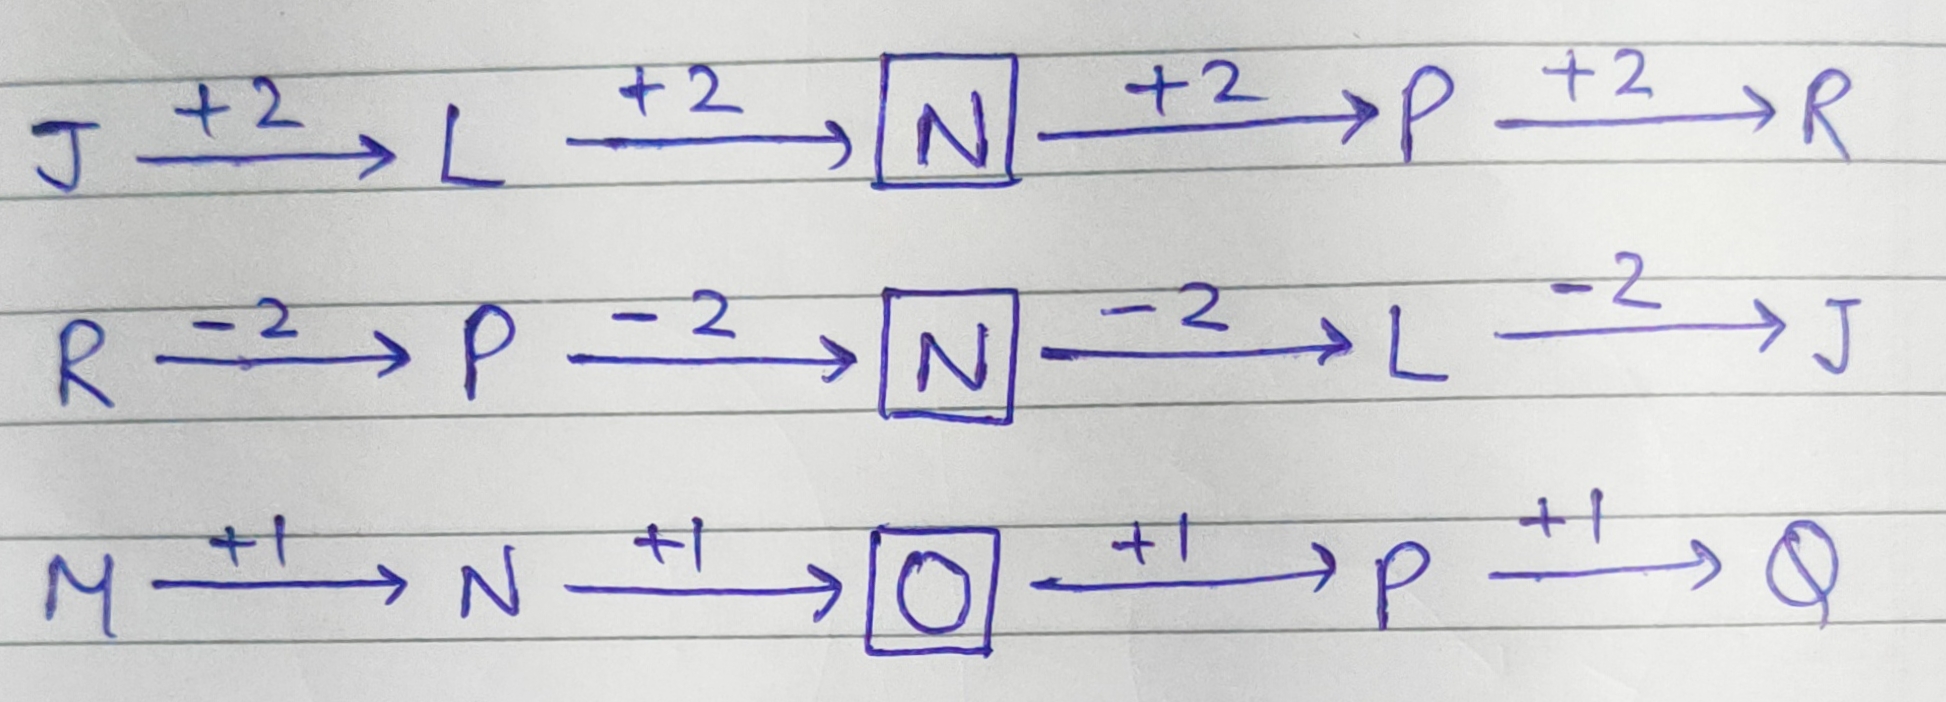 J +2 → L +2 → N +2 → P +2 → R
R -2 → P -2 → N -2 → L -2 → J
M +1 → N +1 → O +1 → P +1 → Q